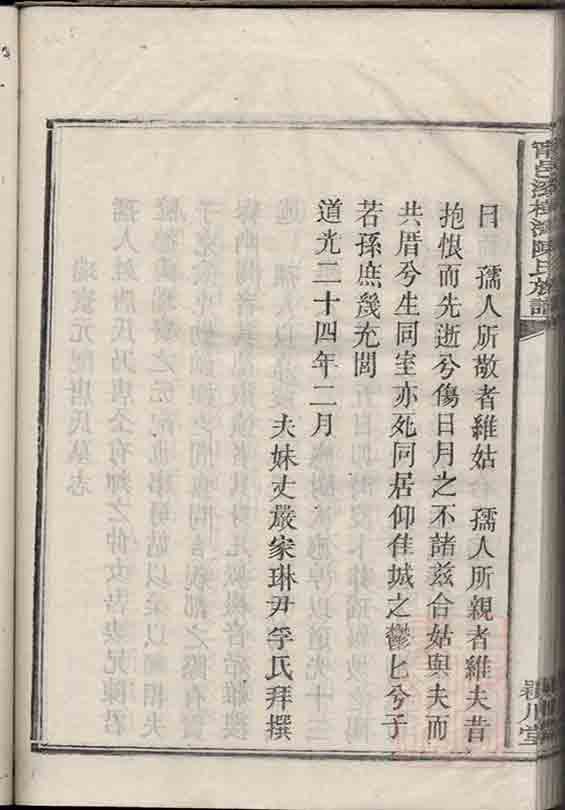 曰　孺人所敬者維姑　孺人所親者維夫昔
抱恨而先逝兮傷日月之不諸茲合姑與夫而
共厝兮生同室亦死同居仰佳城之鬱匕兮子
若孫庶幾充閭
道光二十四年二月
夫妹丈嚴家琳尹孚氏拜撰
陳氏族譜
潁川堂